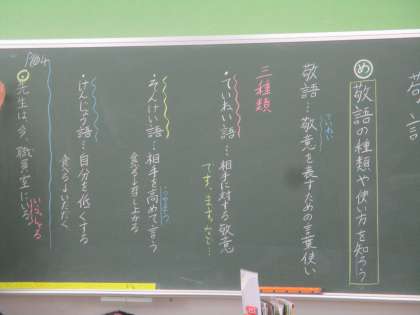 敬語
め 敬語の種類や使い方を知ろう
敬語…敬意を表すための言葉使い
ていねい
三種類
・ていねい語…相手に対する敬意
です、ます、など…
・そんけい語…相手を高めて言う
食べる→召し上がる
・けんじょう語…自分を低くする
食べる→いただく
P104
先生は今、職員室にいる。